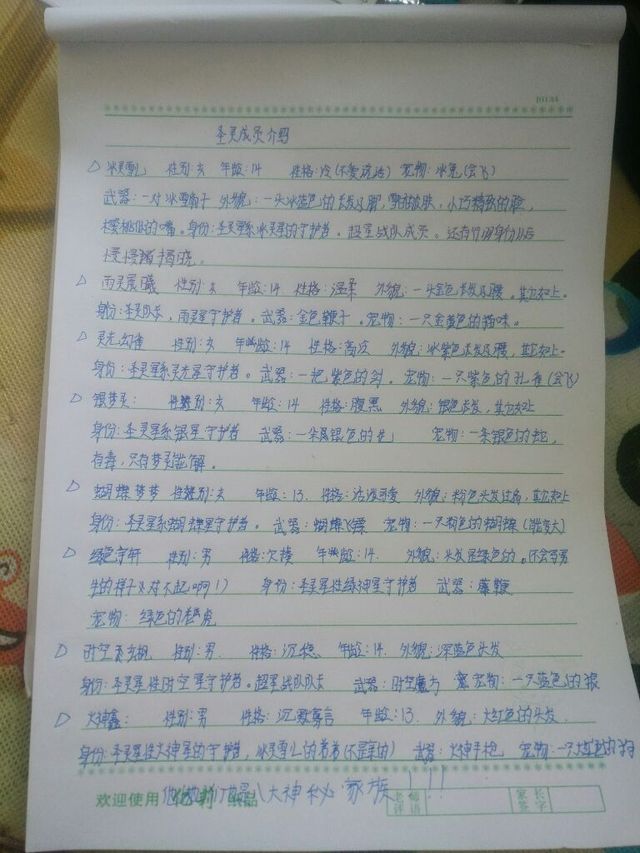 圣灵成员介绍
冰灵雪儿 性别:女 年龄:14 性格:冷(不爱说话) 宠物:冰兔(会飞)
武器:一对冰雪扇子 外貌:一头冰蓝色的长发及腰,雪白的皮肤,小巧精致的脸,
樱桃似的嘴。身份:圣灵星系冰灵星的守护者。超星战队成员。还有 身份以后
慢慢揭晓。
雨灵晨曦 性别:女 年龄:14 性格:温柔 外貌:一头金色长发及腰。其它如上。
身份:圣灵队长,雨灵星守护者。武器:金色鞭子。宠物:一只金黄色的猫咪。
灵尤 性别:女 年龄:14 性格:高冷 外貌:冰紫色长发及腰,其它如上。
身份:圣灵星系灵尤星守护者。武器:一把紫色的剑。宠物:一只紫色的孔雀(会飞)
银梦灵 性别:女 年龄:14 性格:腹黑 外貌:银色长发,其它如上
身份:圣灵星系银星守护者 武器:一朵银色的花 宠物:一条银色的蛇,
有毒,只有梦灵能解。
蝴蝶梦梦 性别:女 年龄:13. 性格:活泼可爱 外貌:粉色头发过肩,其它如上
身份:圣灵星系蝴蝶星守护者。武器:蝴蝶飞镖 宠物:一只粉色的蝴蝶(能变大)
绿色守轩 性别:男 性格:欠揍 年龄:14. 外貌:头发是绿色的。(不会写男
生的样子 对不起啊!) 身份:圣灵星性绿神星守护者 武器:藤鞭
宠物:绿色的 虎
时空 性别:男. 性格:沉稳. 年龄:14. 外貌:深蓝色头发
身份:圣灵星性时空星守护者。超星战队队长 武器:时空魔方 宠物:一只蓝色的狼
火神鑫: 性别:男 性格:沉默寡言 年龄:13. 外貌:火红色的头发.
身份:圣灵星性火神星的守护者,冰灵雪儿的哥哥(不是亲的) 武器:火神手枪 宠物:一只火红色的
欢迎使用 纸品
八大神秘家族!!!
老师评语
家长签字